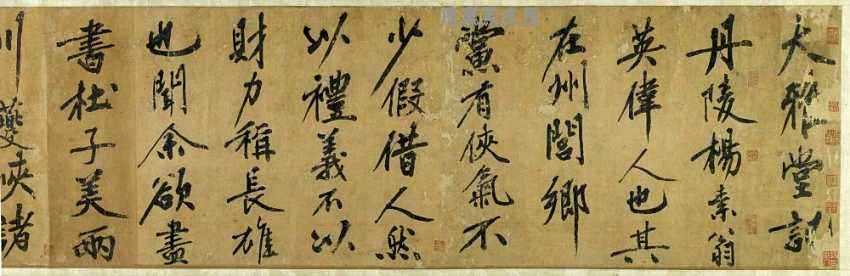 大雅堂記
丹陵楊素翁
英偉人也其
在州閭鄉
黨有俠氣不
少假借人然
以禮義不以
財力稱長雄
也聞余欲盡
書杜子美兩
川夔峽諸